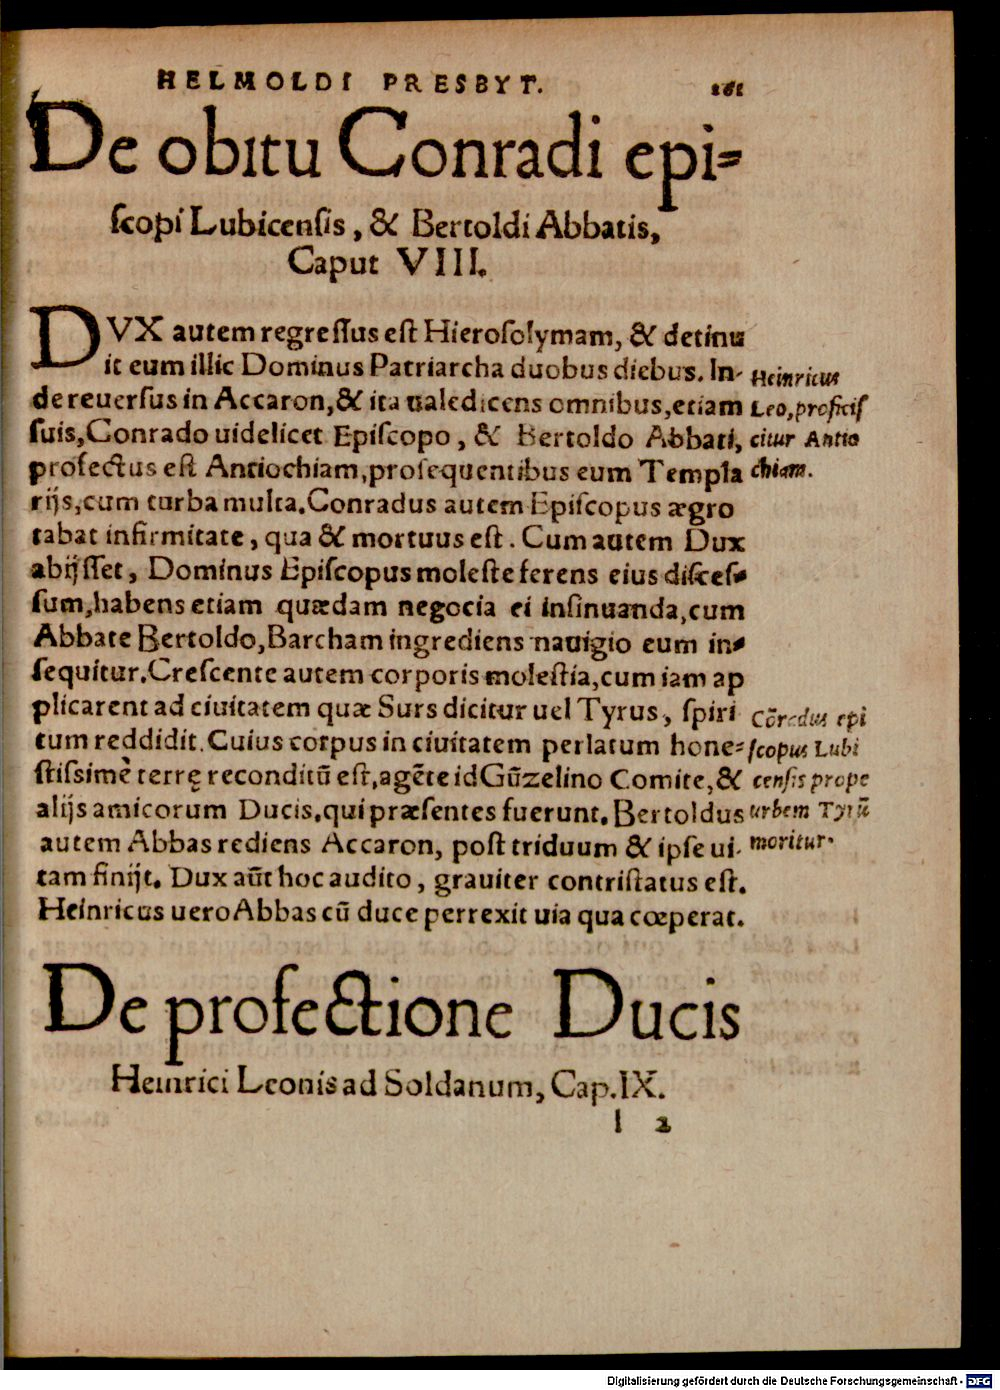 HELMOLDI PRESBYT. 161
De obitu Conradi epi⸗
ſcopi Lubicenſis, & Bertoldi Abbatis,
Caput VIII.
DVX autem regreſſus eſt Hieroſolymam, & detinu
it eum illic Dominus Patriarcha duobus diebus. In-
de reuerſus in Accaron, & ita ualedicens omnibus, etiam
ſuis, Conrado uidelicet Epiſcopo, & Bertoldo Abbati,
profectus eſt Antiochiam, proſequentibus eum Templa
rijs, cum turba multa. Conradus autem Epiſcopus ægro
tabat infirmitate, qua & mortuus eſt. Cum autem Dux
abijſſet, Dominus Epiſcopus moleſte ferens eius diſceſ⸗
ſum, habens etiam quædam negocia ei inſinuanda, cum
Abbate Bertoldo, Barcham ingrediens nauigio eum in⸗
ſequitur. Creſcente autem corporis moleſtia, cum iam ap
plicarent ad ciuitatem quæ Surs dicitur uel Tyrus, ſpiri
tum reddidit. Cuius corpus in ciuitatem perlatum hone⸗
ſtiſsimè terrę reconditũ eſt, agẽte id Gũzelino Comite, &
alijs amicorum Ducis, qui præſentes fuerunt. Bertoldus
autem Abbas rediens Accaron, poſt triduum & ipſe ui-
tam finijt. Dux aũt hoc audito, grauiter contriſtatus eſt.
Heinricus uero Abbas cũ duce perrexit uia qua cœperat.
Heinricus
Leo, proficiſ
citur Antio
chiam.
Cõradus epi
ſcopus Lubi
cenſis prope
urbem Tyrũ
moritur.
De profectione Ducis
Heinrici Leonis ad Soldanum, Cap. IX.
l 2
Digitalisierung gefördert durch die Deutsche Forschungsgemeinschaft - DFG